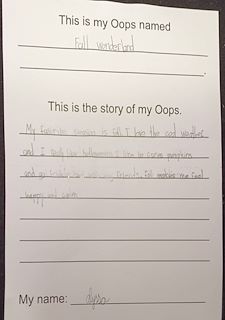 This is my Oops named
Fall wonderland
This is the story of my Oops.
My favorite season is fall I love the cool weather
and I really like halloween I like to carve pumpkins
and go trick friends. Fall makes me feel
happy and calm
My name: